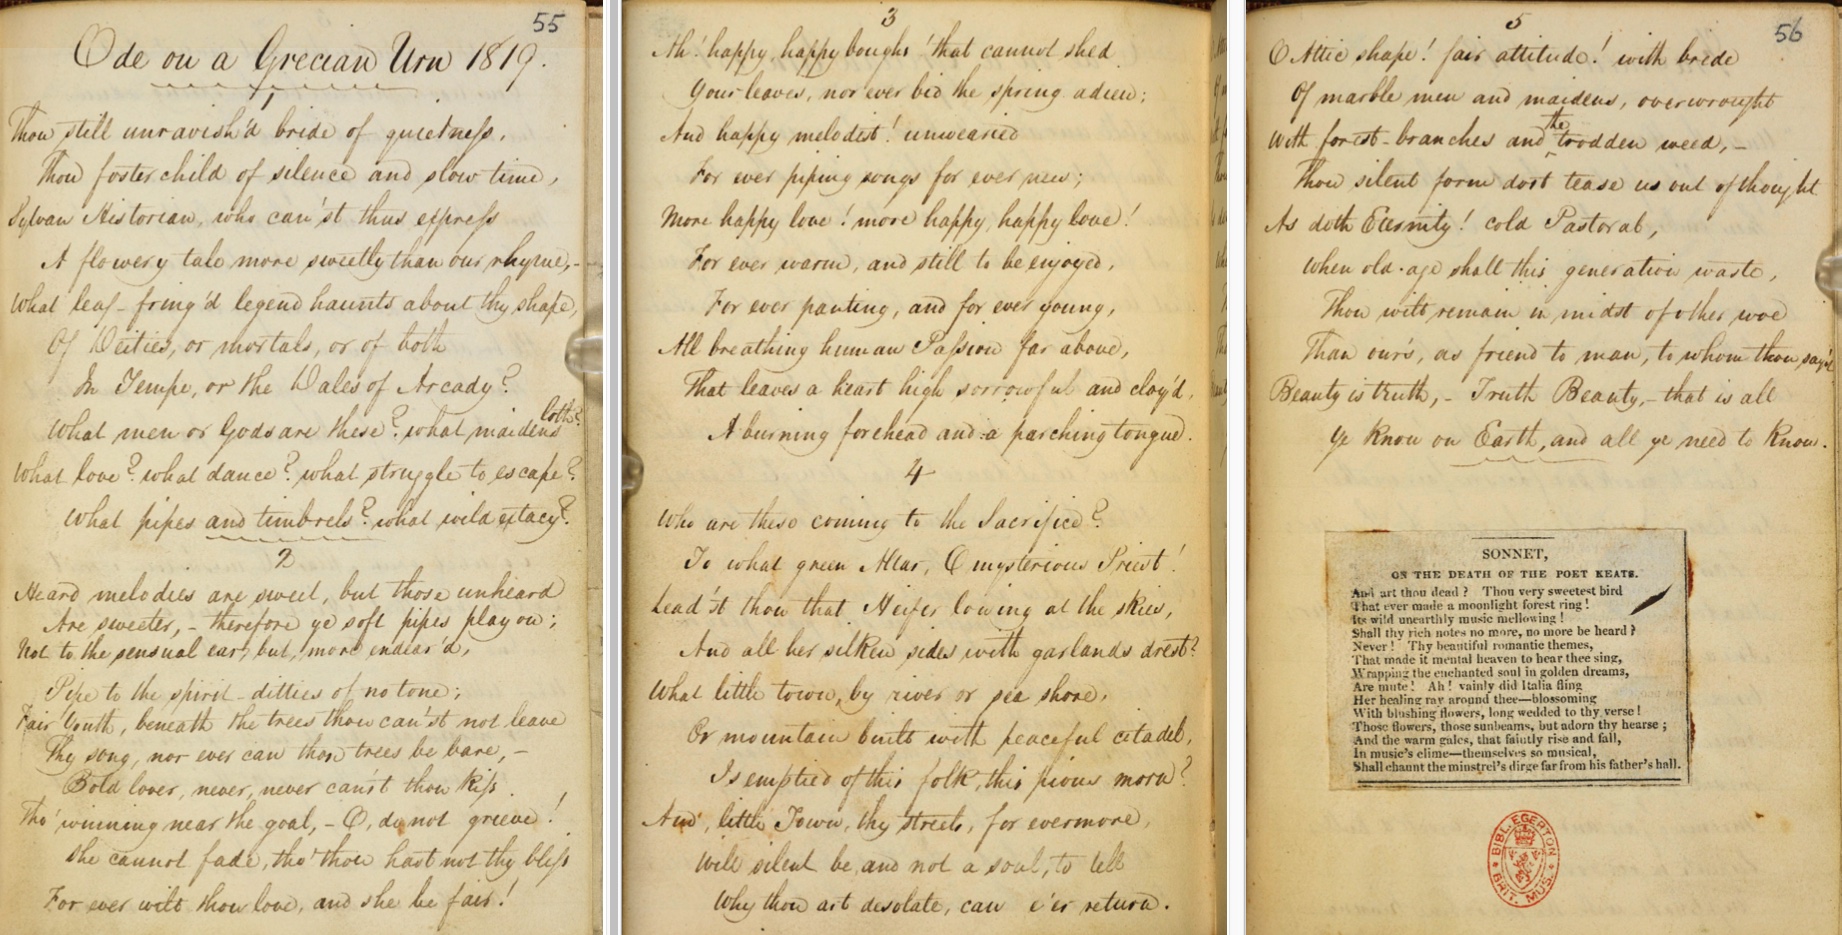 55
Ode on a Grecian Urn 1819.
1
Thou still unravish'd bride of quietness,
Thou foster child of silence and slow time,
Sylvan Historian, who can'st thus express
A flowery tale more sweetly than our rhyme,-
What leaf-fring'd legend haunts about thy shape,
Of Deities, or mortals, or of both
In Tempe, or the Dales of Arcady?
What men or Gods are these? what maidens loth?
What love? what dance? what struggle to escape?
What pipes and timbrels? what wild extacy?
2
Heard melodies are sweet, but those unheard
Are sweeter,- therefore ye soft pipes play on;
Not to the sensual ear, but, more indear'd,
Pipe to the spirit-ditties of no tone;
Fair Youth, beneath the trees thou can'st not leave
Thy song, nor ever can those trees be bare,-
Bold lover, never, never can'st thou kiss.
Tho' winning near the goal,- O, do not grieve!
She cannot fade, tho' thou hast not thy bliss
For ever wilt thou love, and she be fair!
3
Ah! happy, happy boughs! that cannot shed
Your leaves, nor ever bid the spring adieu;
And happy melodist! unwearied
For ever piping songs for ever new;
More happy love! more happy, happy love!
For ever warm, and still to be enjoyed,
For ever panting, and for ever young,
All breathing human Passion far above,
That leaves a heart high sorrowful and cloy'd,
A burning forehead and a parching tongue.
4
Who are these coming to the Sacrifice?
To what green Altar, O mysterious Priest!
Lead'st thou that Heifer lowing at the skies,
And all her silken sides with garlands drest?
What little town, by river or sea shore,
Or mountain built with peaceful citadel,
Is emptied of this folk, this pious morn?
And, little Town, thy streets, for evermore,
Will silent be, and not a soul, to tell
Why thou art desolate, can e'er return.
56
5
O Attic shape! fair attitude! with brede
Of marble men and maidens, overwrought
With forest-branches and the trodden weed,-
Thou silent form dost tease us out of thought
As doth Eternity! cold Pastoral,
When old-age shall this generation waste,
Thou wilt remain in midst of other woe
Than our's, as friend to man, to whom thou say'st
Beauty is truth,- Truth Beauty,- that is all
Ye know on Earth, and all ye need to know.
SONNET,
ON THE DEATH OF THE POET KEATS.
And art thou dead? Thou very sweetest bird
That ever made a moonlight forest ring!
Its wild unearthly music mellowing!
Shall thy rich notes no more, no more be heard?
Never! Thy beautiful romantic themes,
That made it mental heaven to hear thee sing,
Wrapping the enchanted soul in golden dreams,
Are mute! Ah! vainly did Italia fling
Her healing ray around thee—blossoming
With blushing flowers, long wedded to thy verse!
Those flowers, those sunbeams, but adorn thy hearse;
And the warm gales, that faintly rise and fall,
In music's clime—themselves so musical,
Shall chaunt the minstrel's dirge far from his father's hall.
BIBL. EGERTON
BRIT. MUS.